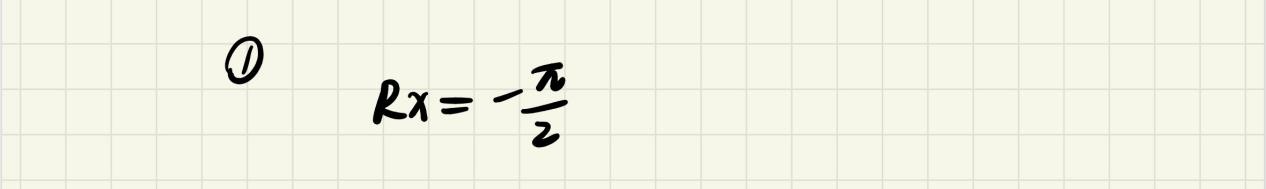 ①
Rx = -π/2